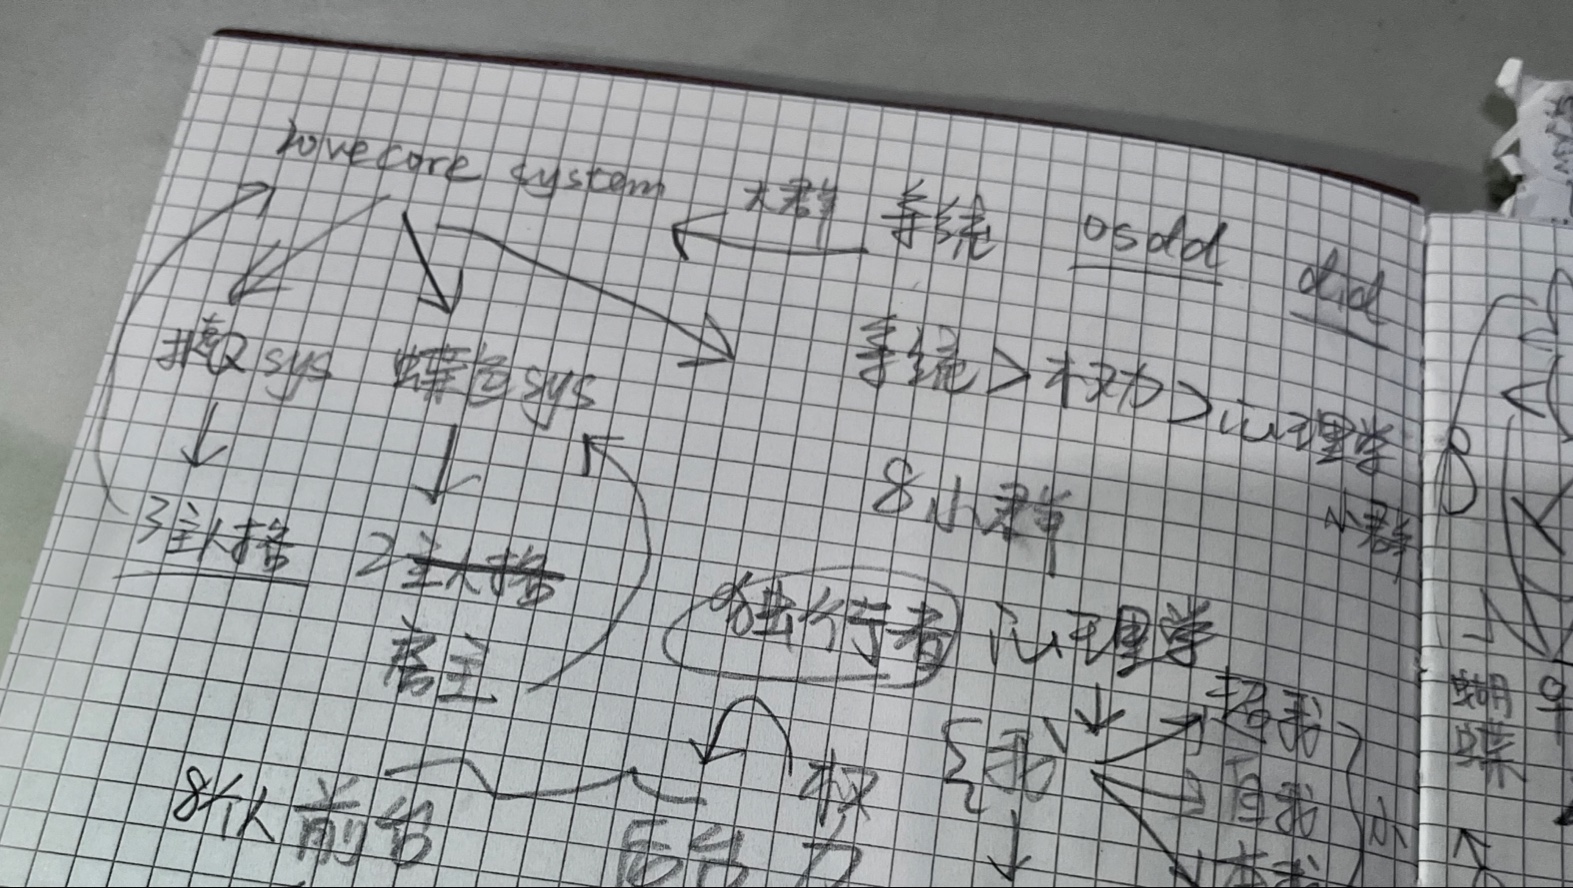 lovecore system
大群 系统 osdd did
sys 蝶 sys
系统 > 权力 > 心理学
8小群 小群
3主人格 2主人格
独行者 心理学
宿主
我 超我
自我
本我
8个人 前台 后台 权力
蝴蝶